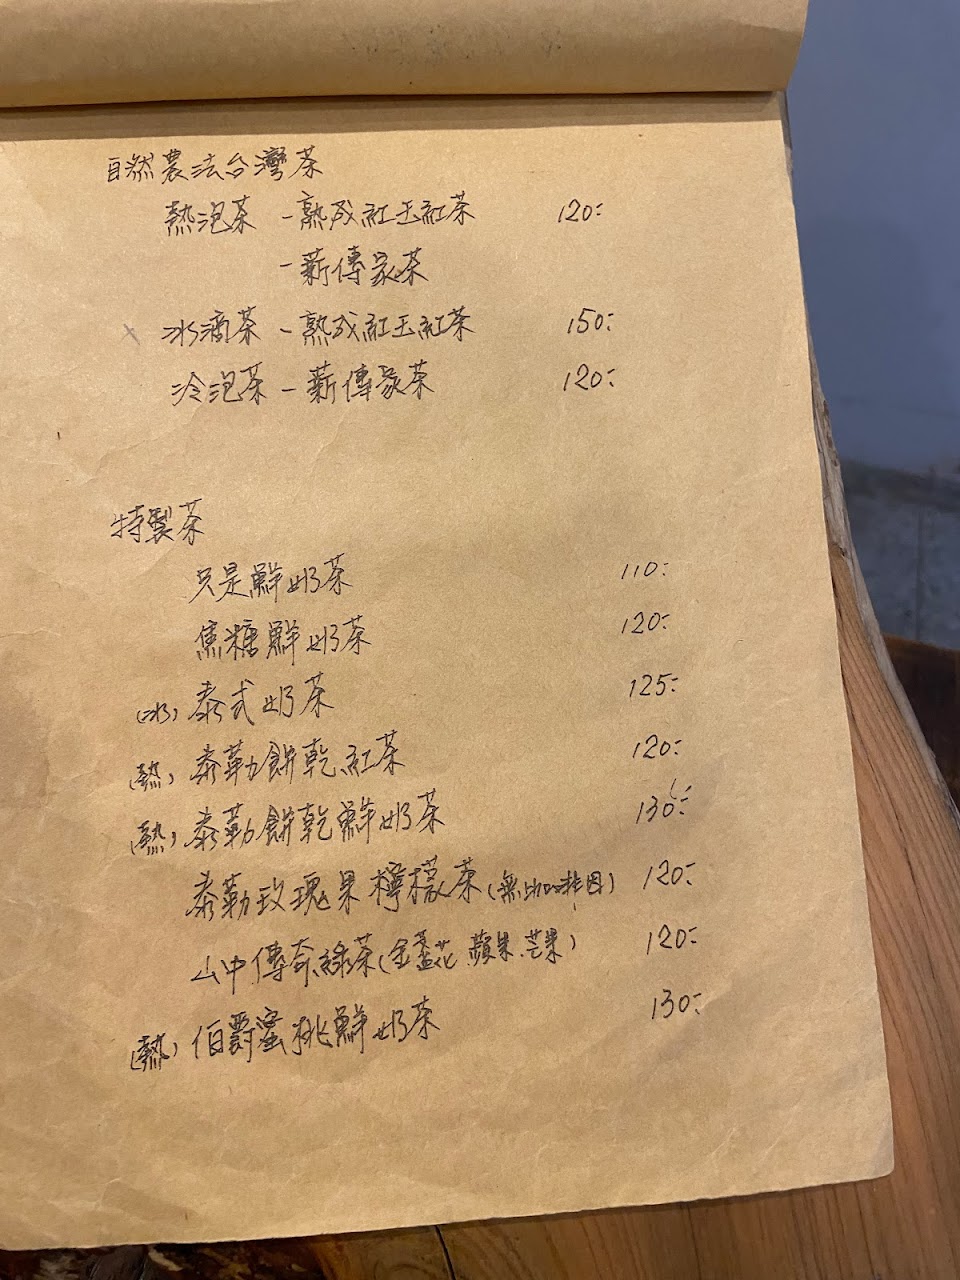 自然農法台灣茶
熱泡茶 - 熟成紅玉紅茶 120:
- 薪傳家茶
x 冰滴茶 - 熟成紅玉紅茶 150:
冷泡茶 - 薪傳家茶 120:
特製茶
只是鮮奶茶 110:
焦糖鮮奶茶 120:
(冰) 泰式奶茶 125:
(熱) 泰勒餅乾紅茶 120:
(熱) 泰勒餅乾鮮奶茶 130:
泰勒玫瑰果檸檬茶(無咖啡因) 120:
山中傳奇綠茶(金盞花.蘋果.芒果) 120:
(熱) 伯爵蜜桃鮮奶茶 130: